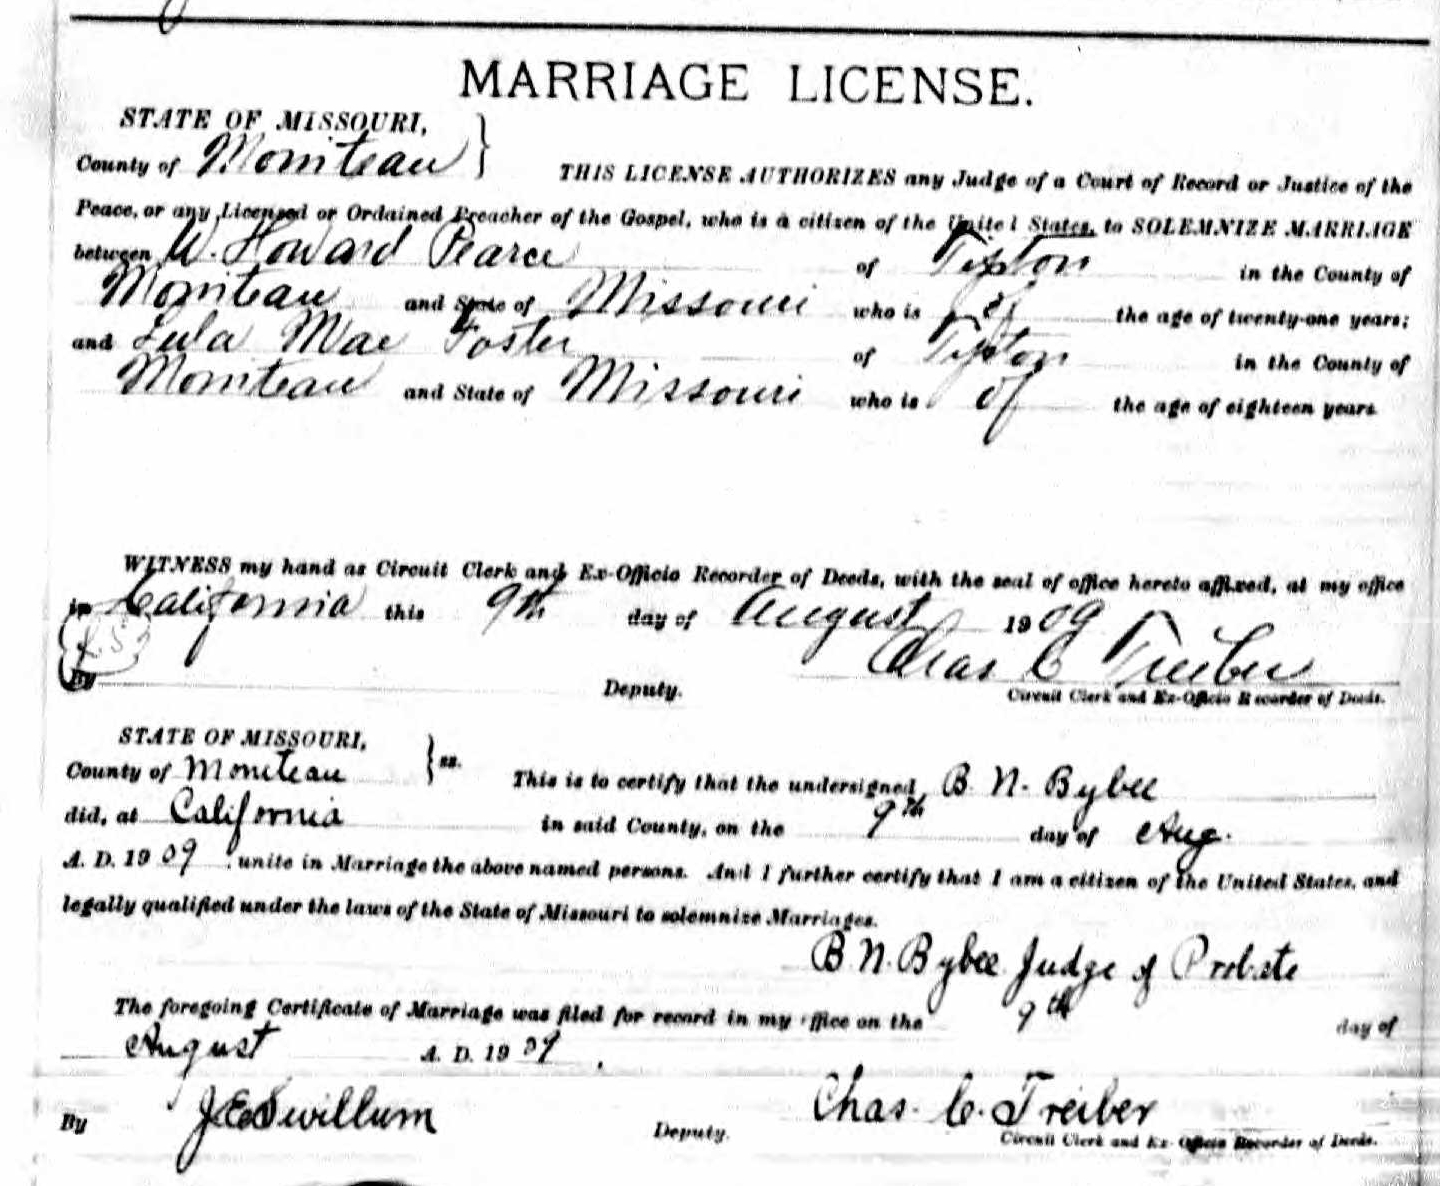 MARRIAGE LICENSE.
STATE OF MISSOURI,
County of Moniteau } THIS LICENSE AUTHORIZES any Judge of a Court of Record or Justice of the
Peace, or any Licensed or Ordained Preacher of the Gospel, who is a citizen of the United States, to SOLEMNIZE MARRIAGE
between W. Howard Pearce of Tipton in the County of
Moniteau and State of Missouri who is of the age of twenty-one years;
and Lula Mae Foster of Tipton in the County of
Moniteau and State of Missouri who is of the age of eighteen years
WITNESS my hand as Circuit Clerk and Ex-Officio Recorder of Deeds, with the seal of office hereto affixed, at my office
in California this 9th day of August 1909
L.S. Chas C Treiber
By Deputy. Circuit Clerk and Ex-Officio Recorder of Deeds.
STATE OF MISSOURI,
County of Moniteau } ss. This is to certify that the undersigned B. N. Bybee
did, at California in said County, on the 9th day of Aug.
A. D. 1909. unite in Marriage the above named persons. And I further certify that I am a citizen of the United States, and
legally qualified under the laws of the State of Missouri to solemnize Marriages.
B. N. Bybee Judge of Probate
The foregoing Certificate of Marriage was filed for record in my office on the 9th day of
August A. D. 1909.
By J E Swillum Deputy. Chas. C. Treiber
Circuit Clerk and Ex-Officio Recorder of Deeds.